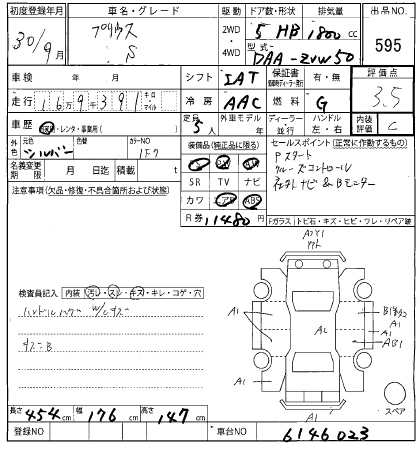 初度登録年月 車名・グレード 駆動 ドア数・形状 排気量 出品NO.
30/9月 プリウス S 2WD 4WD 5 HB 1800 cc 595
型式 DAA-ZVW50
車検 年 月 シフト IAT 保証書 有・無 評価点
走行 16万9千391 キロ マイル 冷房 AAC 燃料 G 3.5
車歴 自家用・レンタ・事業用( ) 定員 5人 外車モデル 年 ディーラー 並行 ハンドル 左・右 内装評価 C
外色 元色 シルバー 色替 カラーNO 1F7
装備品(純正品に限る) セールスポイント(正常に作動するもの)
名義変更期限 月 日迄 積載 t
Pスタート
クルーズコントロール
ナビ&Bモニター
SR TV ナビ
カワ エアB ABS
R券 11480円
注意事項(欠品・修復・不具合箇所および状態)
Fガラス トビ石・キズ・ヒビ・ワレ・リペア跡
検査員記入 内装(汚レ・スレ・キズ・キレ・コゲ・穴)
ハンドルカバー W/Lキズ
キズニB
A1 A1 A1 A2 A1 AB1 A1 A1
スペア
長さ 454cm 幅 176cm 高さ 147cm
登録NO 車台NO 6146023